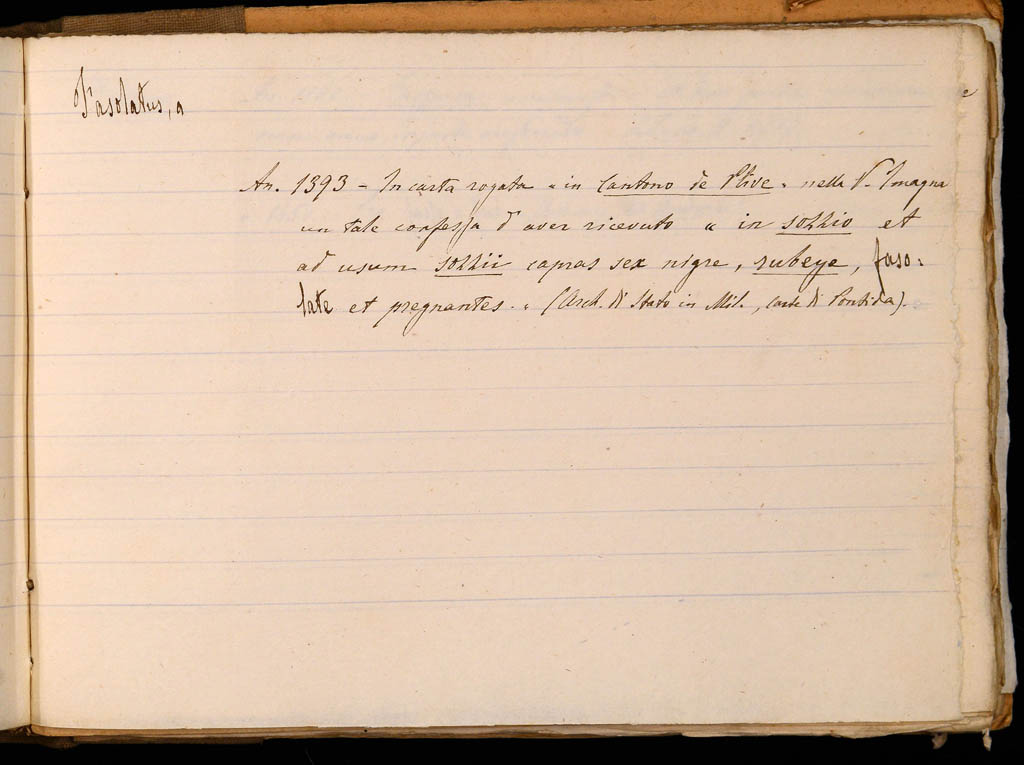 Fasolatus, a
An. 1393 - In carta rogata « in Cantono de Plive » nella V. Imagna
un tale confessa d'aver ricevuto « in sozzio et
ad usum sozzii capras sex nigre, rubeye, faso-
late et pregnantes. » (Arch. di Stato in Mil., carte di Pontida).